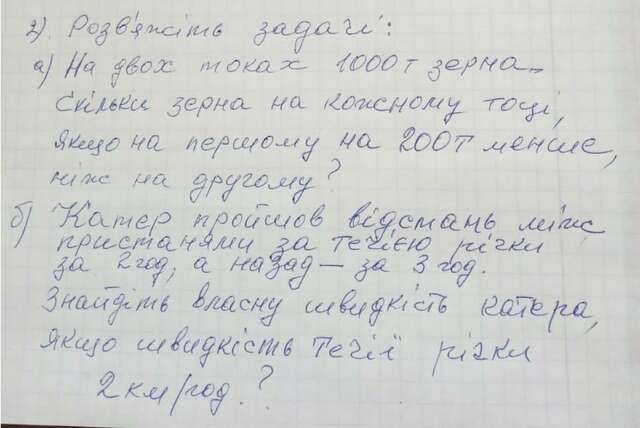 2). Розв'яжіть задачі:
а) На двох токах 1000т зерна.
Скільки зерна на кожному тоці,
якщо на першому на 200т менше,
ніж на другому?
б) Катер пройшов відстань між
пристанями за течією річки
за 2год, а назад — за 3 год.
Знайдіть власну швидкість катера,
якщо швидкість течії річки
2км/год.?